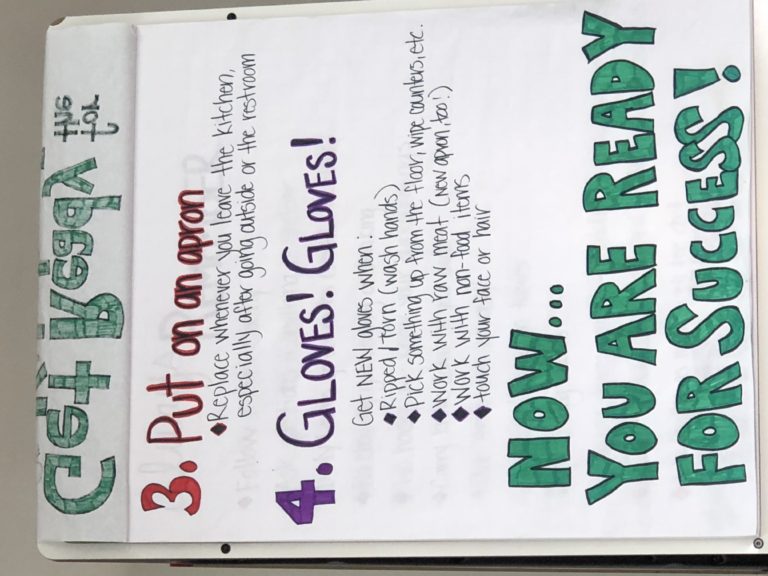 Get Ready
3. Put on an apron
◆Replace whenever you leave the kitchen,
especially after going outside or the restroom
4. GLOVES! GLOVES!
Get NEW gloves when:
◆Ripped/torn (wash hands)
◆Pick something up from the floor, wipe counters, etc.
◆Work with raw meat (new apron, too!)
◆Work with non-food items
◆touch your face or hair
NOW...
YOU ARE READY
FOR SUCCESS!